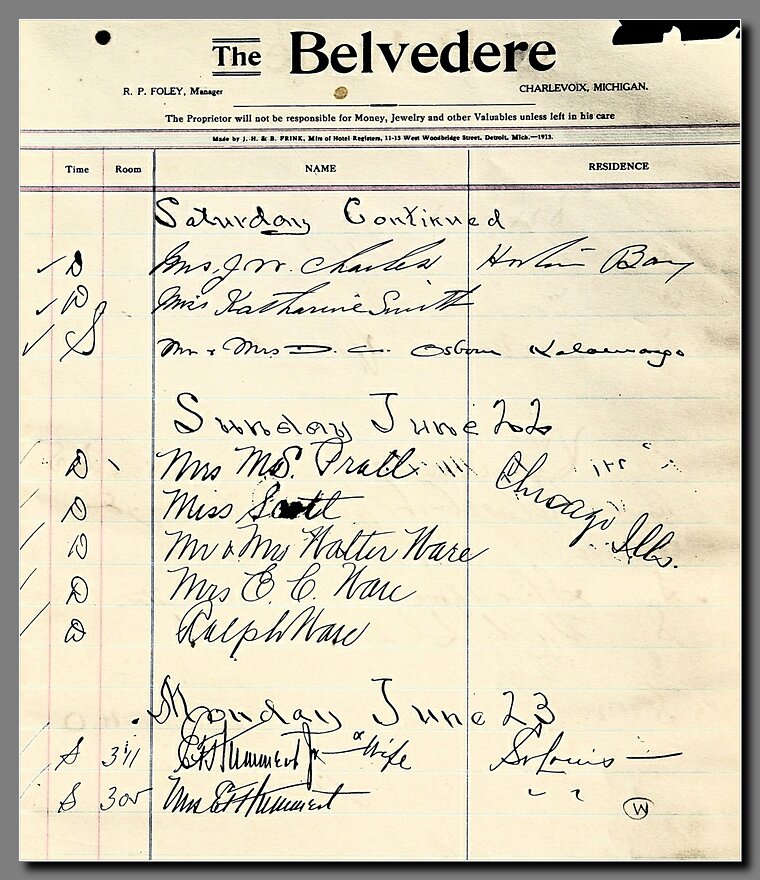 The Belvedere
R. P. FOLEY, Manager
CHARLEVOIX, MICHIGAN.
The Proprietor will not be responsible for Money, Jewelry and other Valuables unless left in his care
Made by J. H. & B. PRINK, Mfrs of Hotel Registers, 11-15 West Woodbridge Street, Detroit, Mich.—1913.
Time Room NAME RESIDENCE
Saturday Continued
D Mrs. J. W. Charles Horton Bay
D Miss Katharine Smith
S Mr & Mrs D. C. Osborn Kalamazoo
Sunday June 22
D Mrs M. S. Pratt Chicago Ills.
D Miss Scott
D Mr & Mrs Walter Ware
D Mrs E. C. Ware
D Ralph Ware
Monday June 23
S 311 Jr & Wife St Louis
S 305 Mrs " "
W